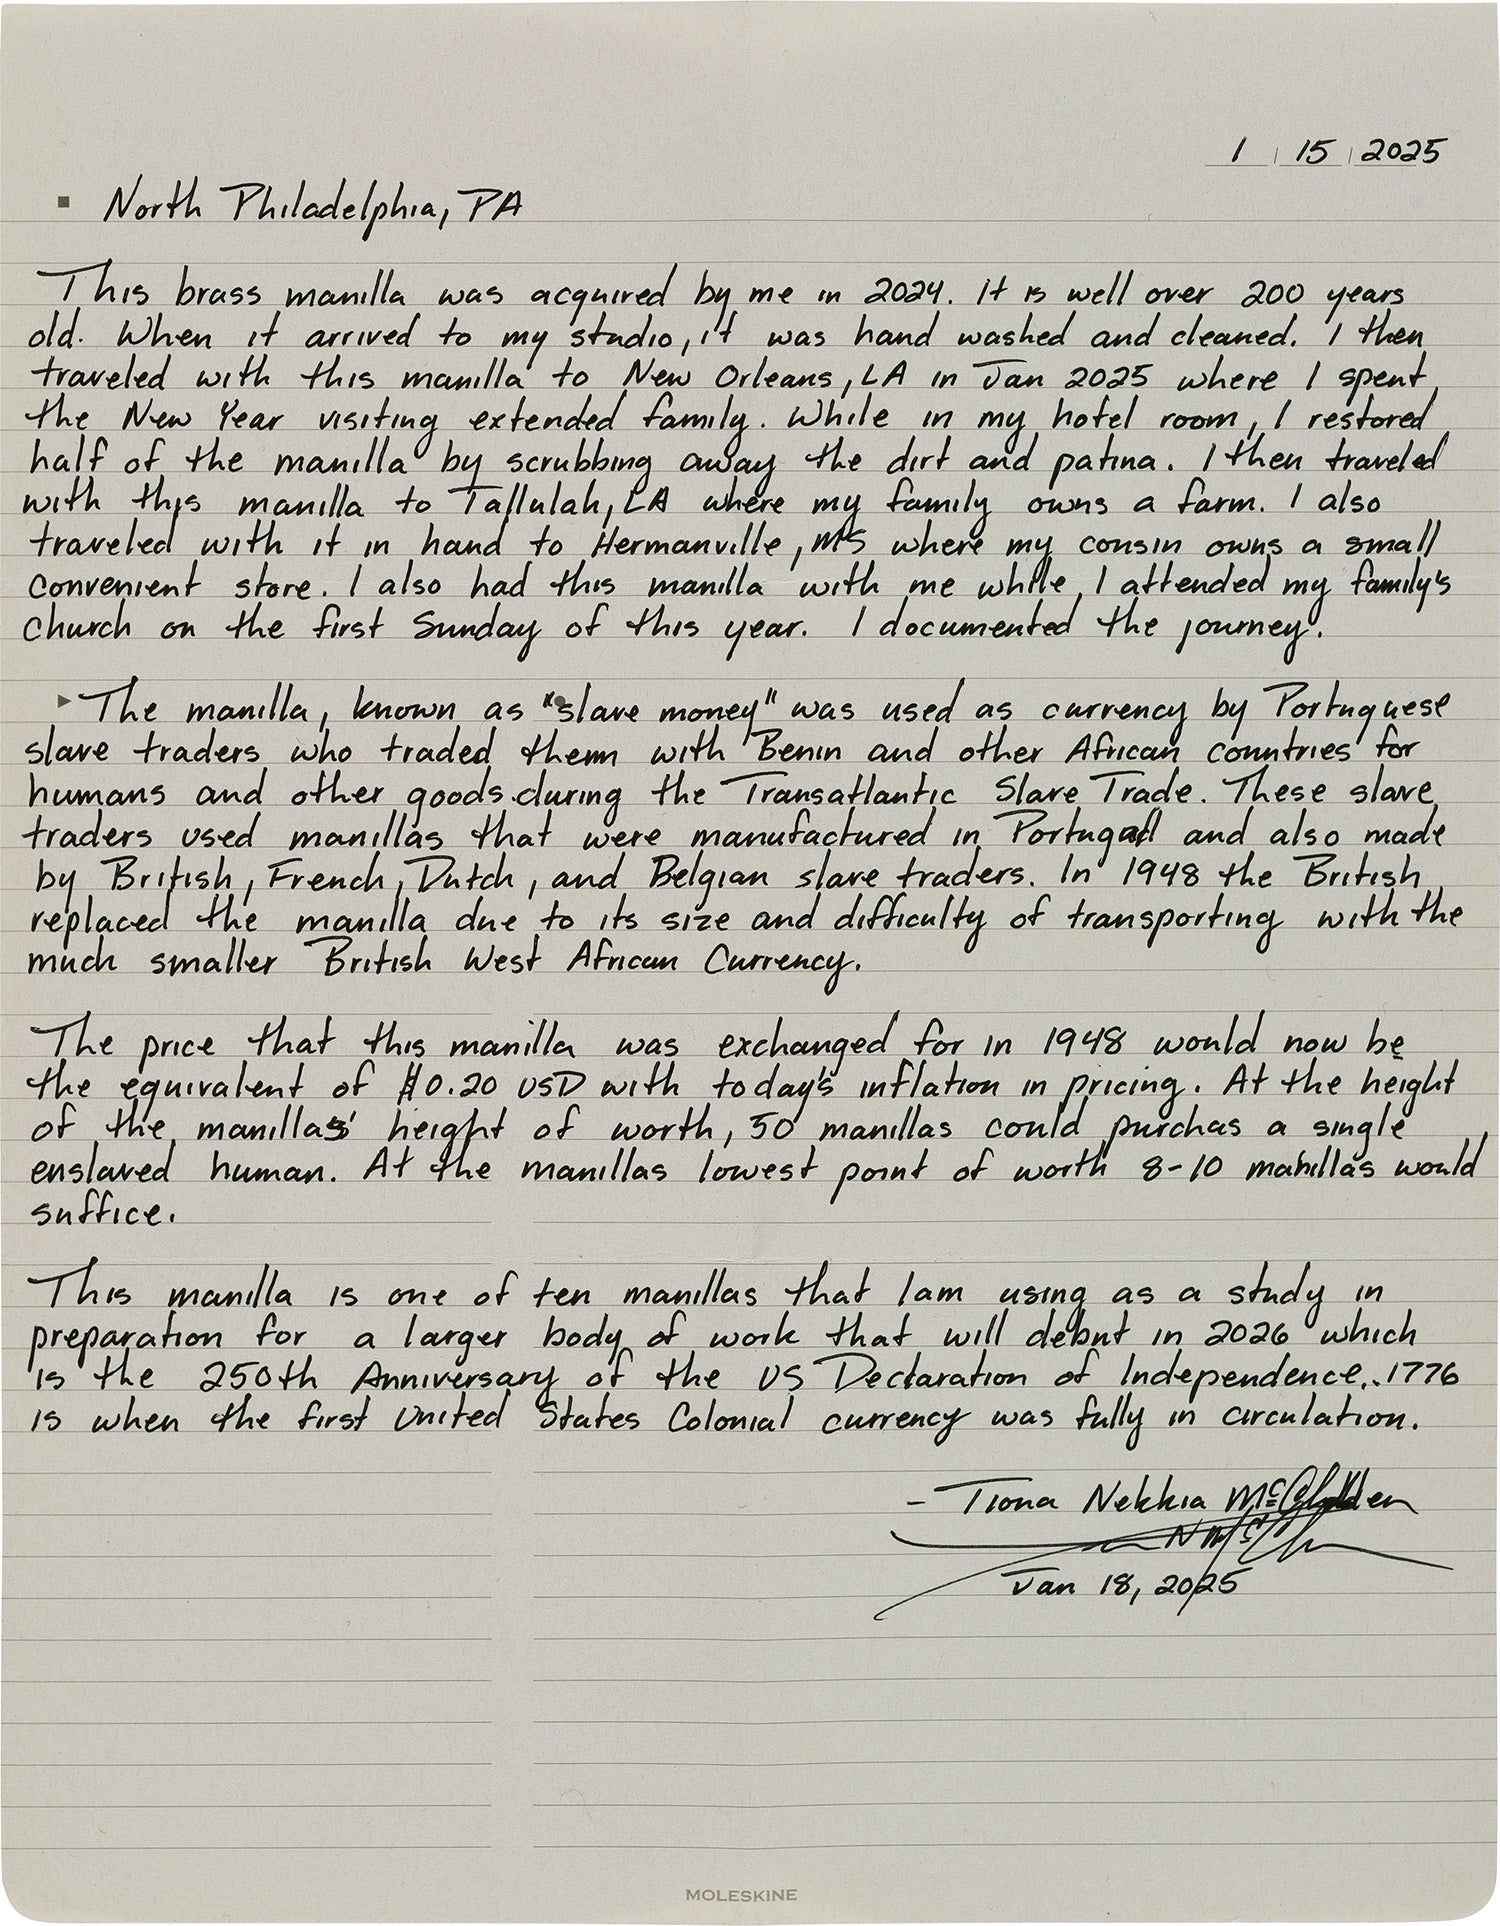 1 | 15 | 2025
North Philadelphia, PA
This brass manilla was acquired by me in 2024. It is well over 200 years
old. When it arrived to my studio, it was hand washed and cleaned. I then
traveled with this manilla to New Orleans, LA in Jan 2025 where I spent
the New Year visiting extended family. While in my hotel room, I restored
half of the manilla by scrubbing away the dirt and patina. I then traveled
with this manilla to Tallulah, LA where my family owns a farm. I also
traveled with it in hand to Hermanville, MS where my cousin owns a small
convenient store. I also had this manilla with me while I attended my family's
church on the first Sunday of this year. I documented the journey.
The manilla, known as "slave money" was used as currency by Portuguese
slave traders who traded them with Benin and other African countries for
humans and other goods during the Transatlantic Slave Trade. These slave
traders used manillas that were manufactured in Portugal and also made
by British, French, Dutch, and Belgian slave traders. In 1948 the British
replaced the manilla due to its size and difficulty of transporting with the
much smaller British West African Currency.
The price that this manilla was exchanged for in 1948 would now be
the equivalent of $0.20 USD with today's inflation in pricing. At the height
of the manillas' height of worth, 50 manillas could purchas a single
enslaved human. At the manillas lowest point of worth 8-10 manillas would
suffice.
This manilla is one of ten manillas that I am using as a study in
preparation for a larger body of work that will debut in 2026 which
is the 250th Anniversary of the US Declaration of Independence. 1776
is when the first United States Colonial currency was fully in circulation.
- Tiona Nekkia McClodden
Jan 18, 2025
MOLESKINE